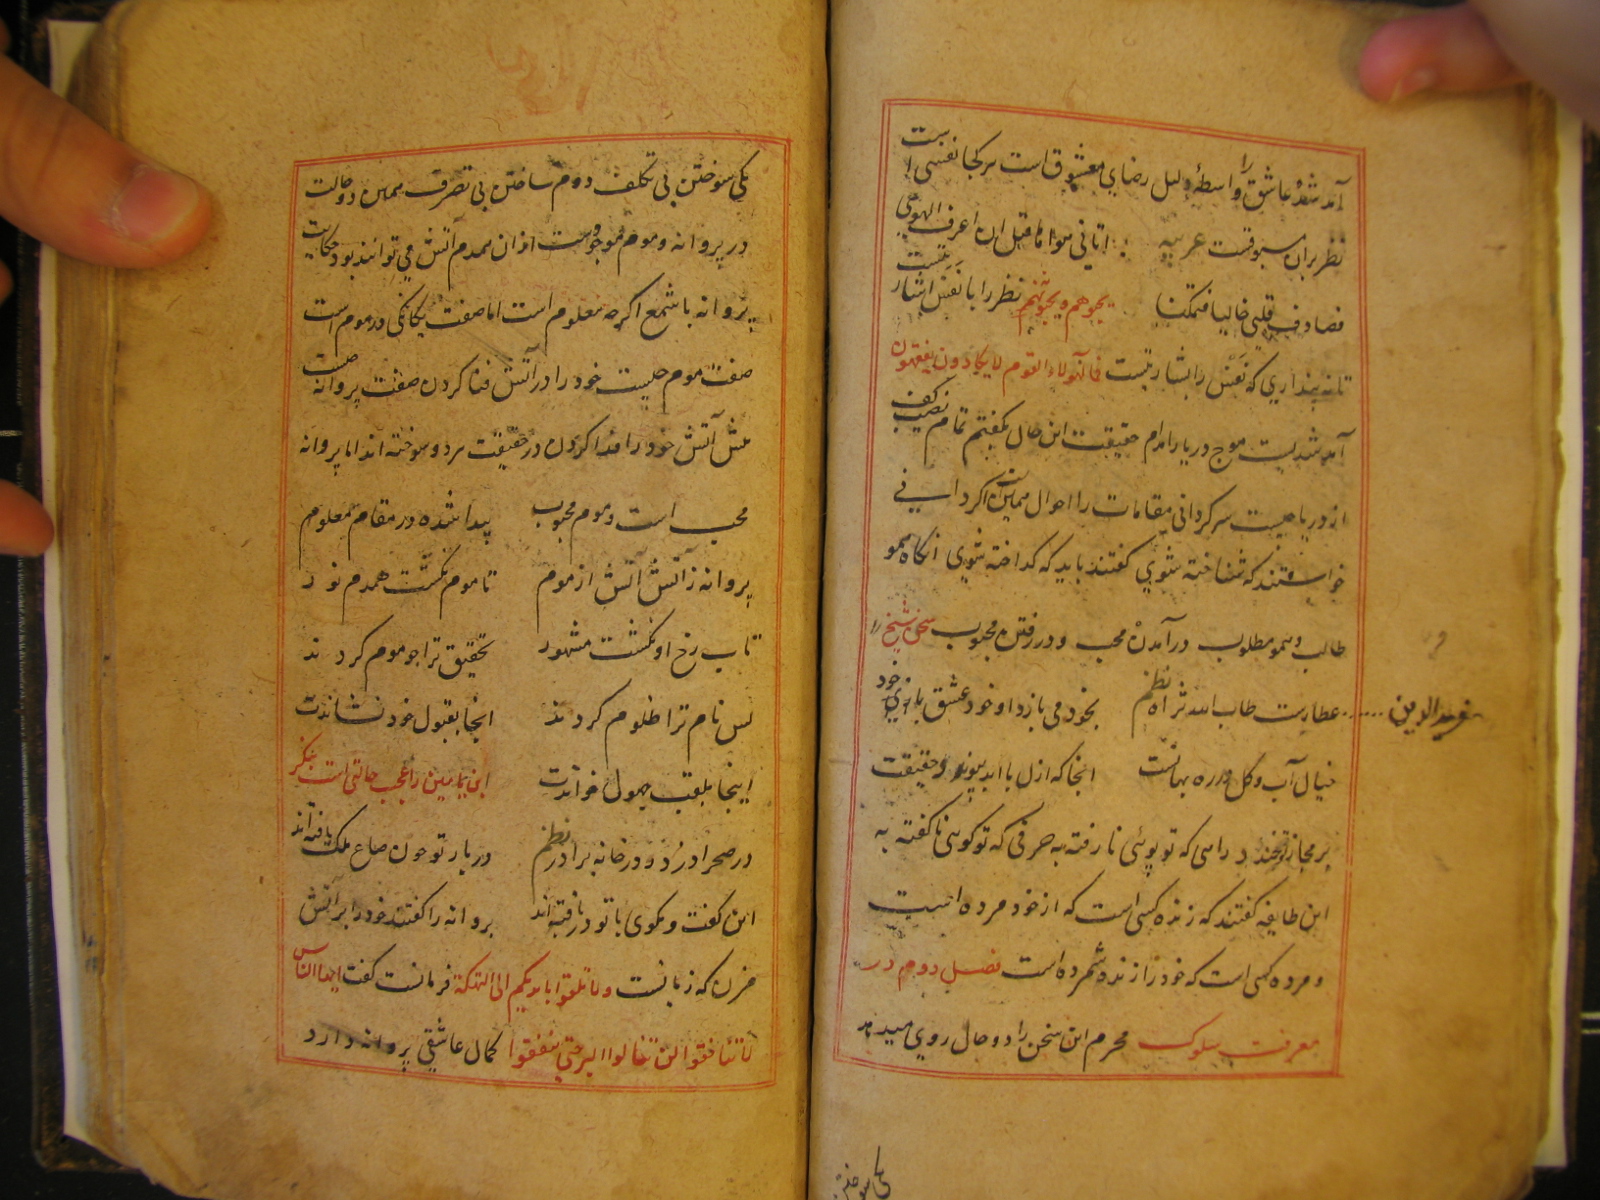 آمد شد عاشق را واسطهٔ دلیل رضای معشوق است هر کجا نفسی است
نظر بران مسبوقست عربیه اتانی هوا ما قبل ان اعرف الهوی
فصادف قلبی خالیا فتمکنا یحبهم و یحبونهم نظر را با نفس
تا نه پنداری که نفس را فمالهؤلاء القوم لا یکادون یفقهون
آمد شدیست موج دریا را حقیقت این حال بگفتم تمام نصیب کف
از دریا چیست سرگردانی مقامات را احوال همین است اگر
خواستند که شناخته شوی گفتند باید که گداخته شوی آنگاه همو
طالب و همو مطلوب در آمدن محب و در رفتن محبوب سخن شیخ را
فرید الدین
عطارست طاب الله ثراه نظم بخود می بازد او خود عشق بازی خود
خیال آب و گل در ره بهانست اینجا که ازل با ابد پیوندد حقیقت
بر مجاز خندد راهی که تو پوئی نارفته به حرفی که تو گوئی ناگفته به
این طایفه گفتند که زنده کسی است که از خود مرده است
و مرده کسی است که خود را زنده شمرده است فصل دوم در
معرفت سلوک محرم این سخن را دو حال روی میدهد
یکی سوختن
یکی سوختن بی تکلف دوم ساختن بی تصرف همین دو حالت
در پروانه و موم موجودست ازان همدم آتش می توانند بود حکایت
پروانه با شمع اگرچه معلوم است اما صفت یگانگی در موم است
صفت موم چیست خود را در آتش فنا کردن صفت پروانه چیست
مثل آتش خود را فدا کردن در حقیقت هر دو سوخته اند اما پروانه
محب است و موم محبوب پیدا شده در مقام معلوم
پروانه ز آتش آتش از موم تا موم نگشت همدم نور
تاب رخ او نگشت مشهور تحقیق ترا جو موم کردند
پس نام ترا ظلوم کردند آنجا بقبول خود نشاندت
اینجا بلقب جهول خواندت ابن یامین را عجب حالتی است بنگر
در صحرا دزد و در خانه برادر نظم در بار تو چون صاع ملک یافته اند
این گفت و مگوی با تو دریافته اند پروانه را گفتند خود را بر آتش
مزن که زیانست ولا تلقوا بایدیکم الی التهلکة فرمانست گفت ایها الناس
لا تنافقوا لن تنالوا البر حتی تنفقوا کمال عاشقی پروانه دارد